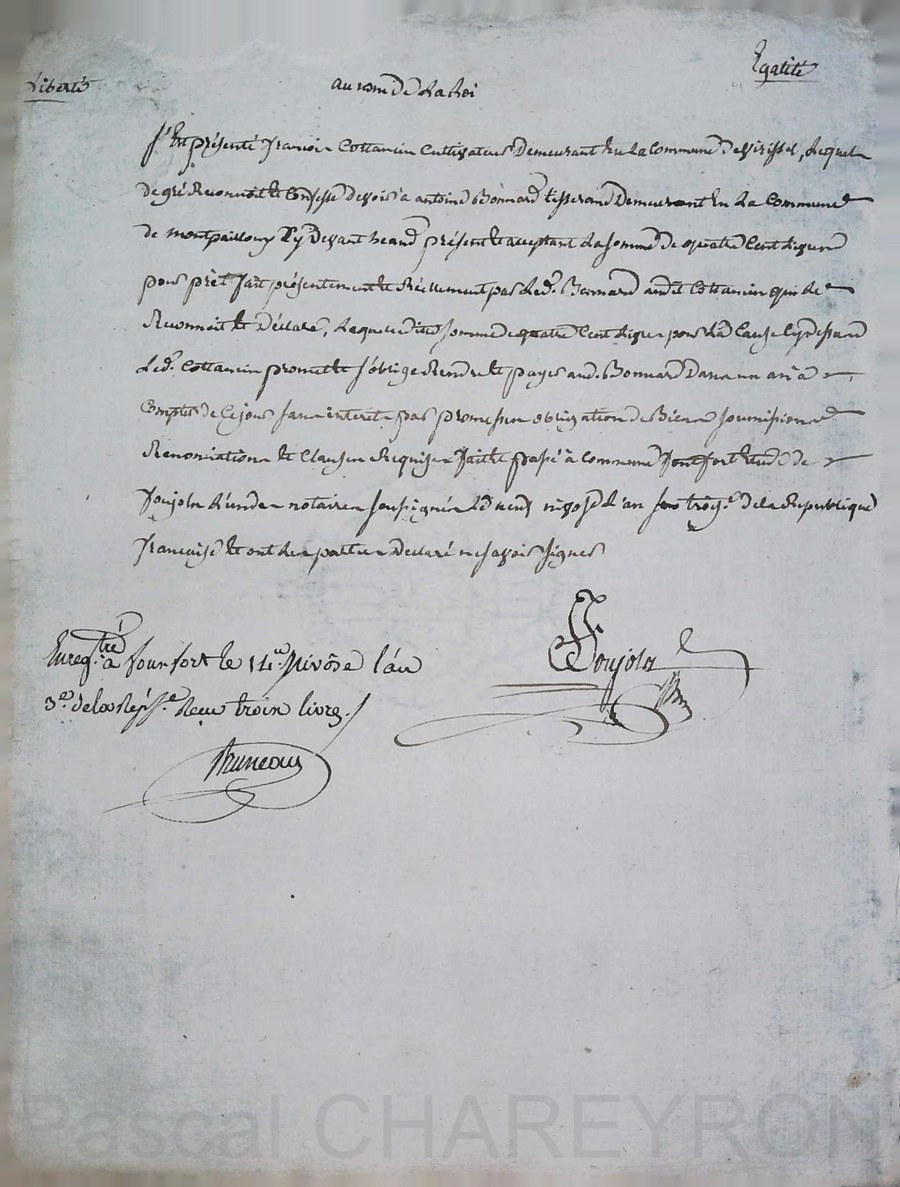 Liberté au nom de La Loi Egalité
S'est présenté francois Cottancin Cultivateur Demeurant En La Commune de Lequel
de gré Reconnoit et Confesse devoir à antoine Bonnard tisserand Demeurant En La Commune
de montpailloux Cy Devant present et acceptant La somme de quatre Cent Livres
pour prêt fait présentement et Réellement par Led. Bonnard audit Cottancin qui Le
Reconnoit et Déclare, Laquelle ditte somme de quatre Cent Livres pour La Cause Cy dessus
Led. Cottancin promet et s'oblige Rendre et payer aud. Bonnard Dans un an à
Compter de Ce jour sans interet par promesses obligation de Biens soumissions
Renonciations et Clauses Requises fait et passé à Commune fontfort Etude de
Joujoln L'un des notaires soussignés Le neuf nivose L'an trois.e de la Republique
francaise et ont Les parties Declaré ne savoir signer
Joujoln
Enreg.tré à fontfort le 14.e Nivôse l'an
3.e de la Rép. f.se Reçu trois livres
Bruneau
Pascal CHAREYRON